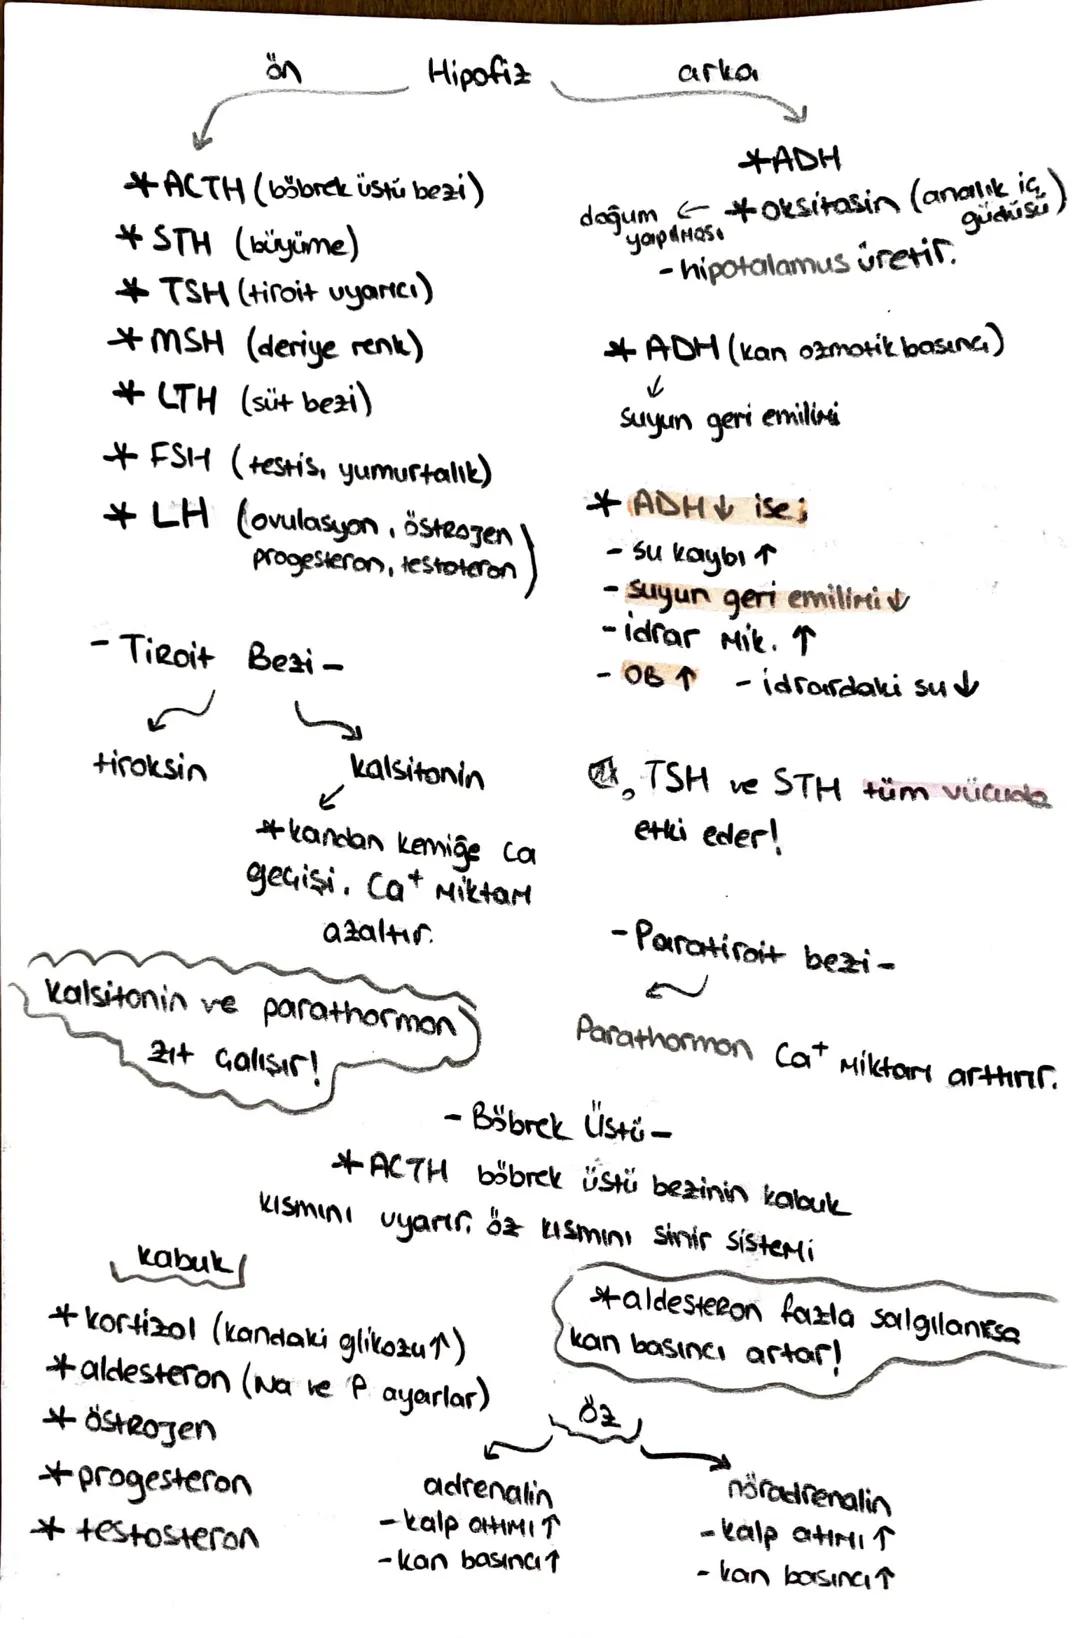 ön Hipofiz arka
*ACTH (böbrek üstü bezi)
*STH (büyüme)
*TSH (tiroit uyarıcı)
*MSH (deriye renk)
*LTH (süt bezi)
*FSH (testis, yumurtalık)
*LH (ovulasyon, östrojen
progesteron, testoteron)
*ADH
doğum ← *oksitosin (analık iç
yapılması güdüsü)
-hipotalamus üretir.
*ADH (kan ozmotik basıncı)
↓
suyun geri emilimi
*ADH↓ ise;
- su kaybı ↑
- suyun geri emilimi ↓
- idrar mik. ↑
- OB ↑ - idrardaki su ↓
- Tiroit Bezi -
tiroksin kalsitonin
*kandan kemiğe Ca
geçişi, Ca⁺ miktarı
azaltır.
TSH ve STH tüm vücuda
etki eder!
- Paratiroit bezi -
Parathormon Ca⁺ miktarı arttırır.
kalsitonin ve parathormon
zıt çalışır!
- Böbrek Üstü -
*ACTH böbrek üstü bezinin kabuk
kısmını uyarır, öz kısmını sinir sistemi
kabuk
*kortizol (kandaki glikozu↑)
*aldesteron (Na ve P ayarlar)
*östrojen
*progesteron
*testosteron
*aldesteron fazla salgılanırsa
kan basıncı artar!
öz
adrenalin
- kalp atımı ↑
- kan basıncı ↑
nöradrenalin
- kalp atımı ↑
- kan basıncı ↑